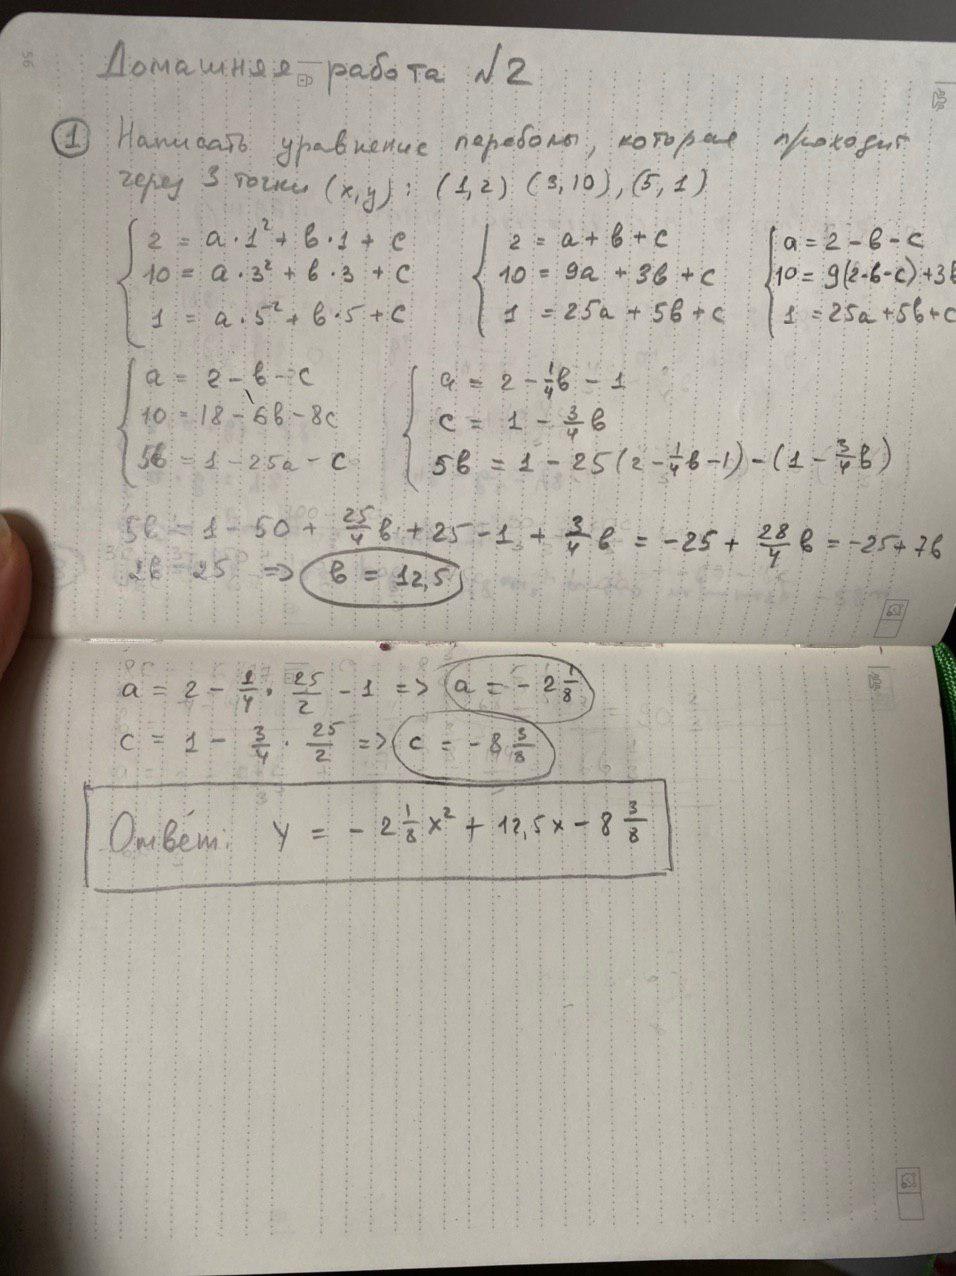 56
Домашняя работа №2
① Написать уравнение параболы, которая проходит
через 3 точки (x,y): (1,2) (3,10), (5,1)
{ 2 = a·1² + b·1 + c
10 = a·3² + b·3 + c
1 = a·5² + b·5 + c
{ 2 = a + b + c
10 = 9a + 3b + c
1 = 25a + 5b + c
{ a = 2 - b - c
10 = 9(2-b-c) + 3b
1 = 25a + 5b + c
{ a = 2 - b - c
10 = 18 - 6b - 8c
5b = 1 - 25a - c
{ a = 2 - 1/4 b - 1
c = 1 - 3/4 b
5b = 1 - 25(2 - 1/4 b - 1) - (1 - 3/4 b)
5b = 1 - 50 + 25/4 b + 25 - 1 + 3/4 b = -25 + 28/4 b = -25 + 7b
2b = 25 => b = 12,5
a = 2 - 1/4 · 25/2 - 1 => a = - 2 1/8
c = 1 - 3/4 · 25/2 => c = - 8 3/8
Ответ: y = - 2 1/8 x² + 12,5x - 8 3/8